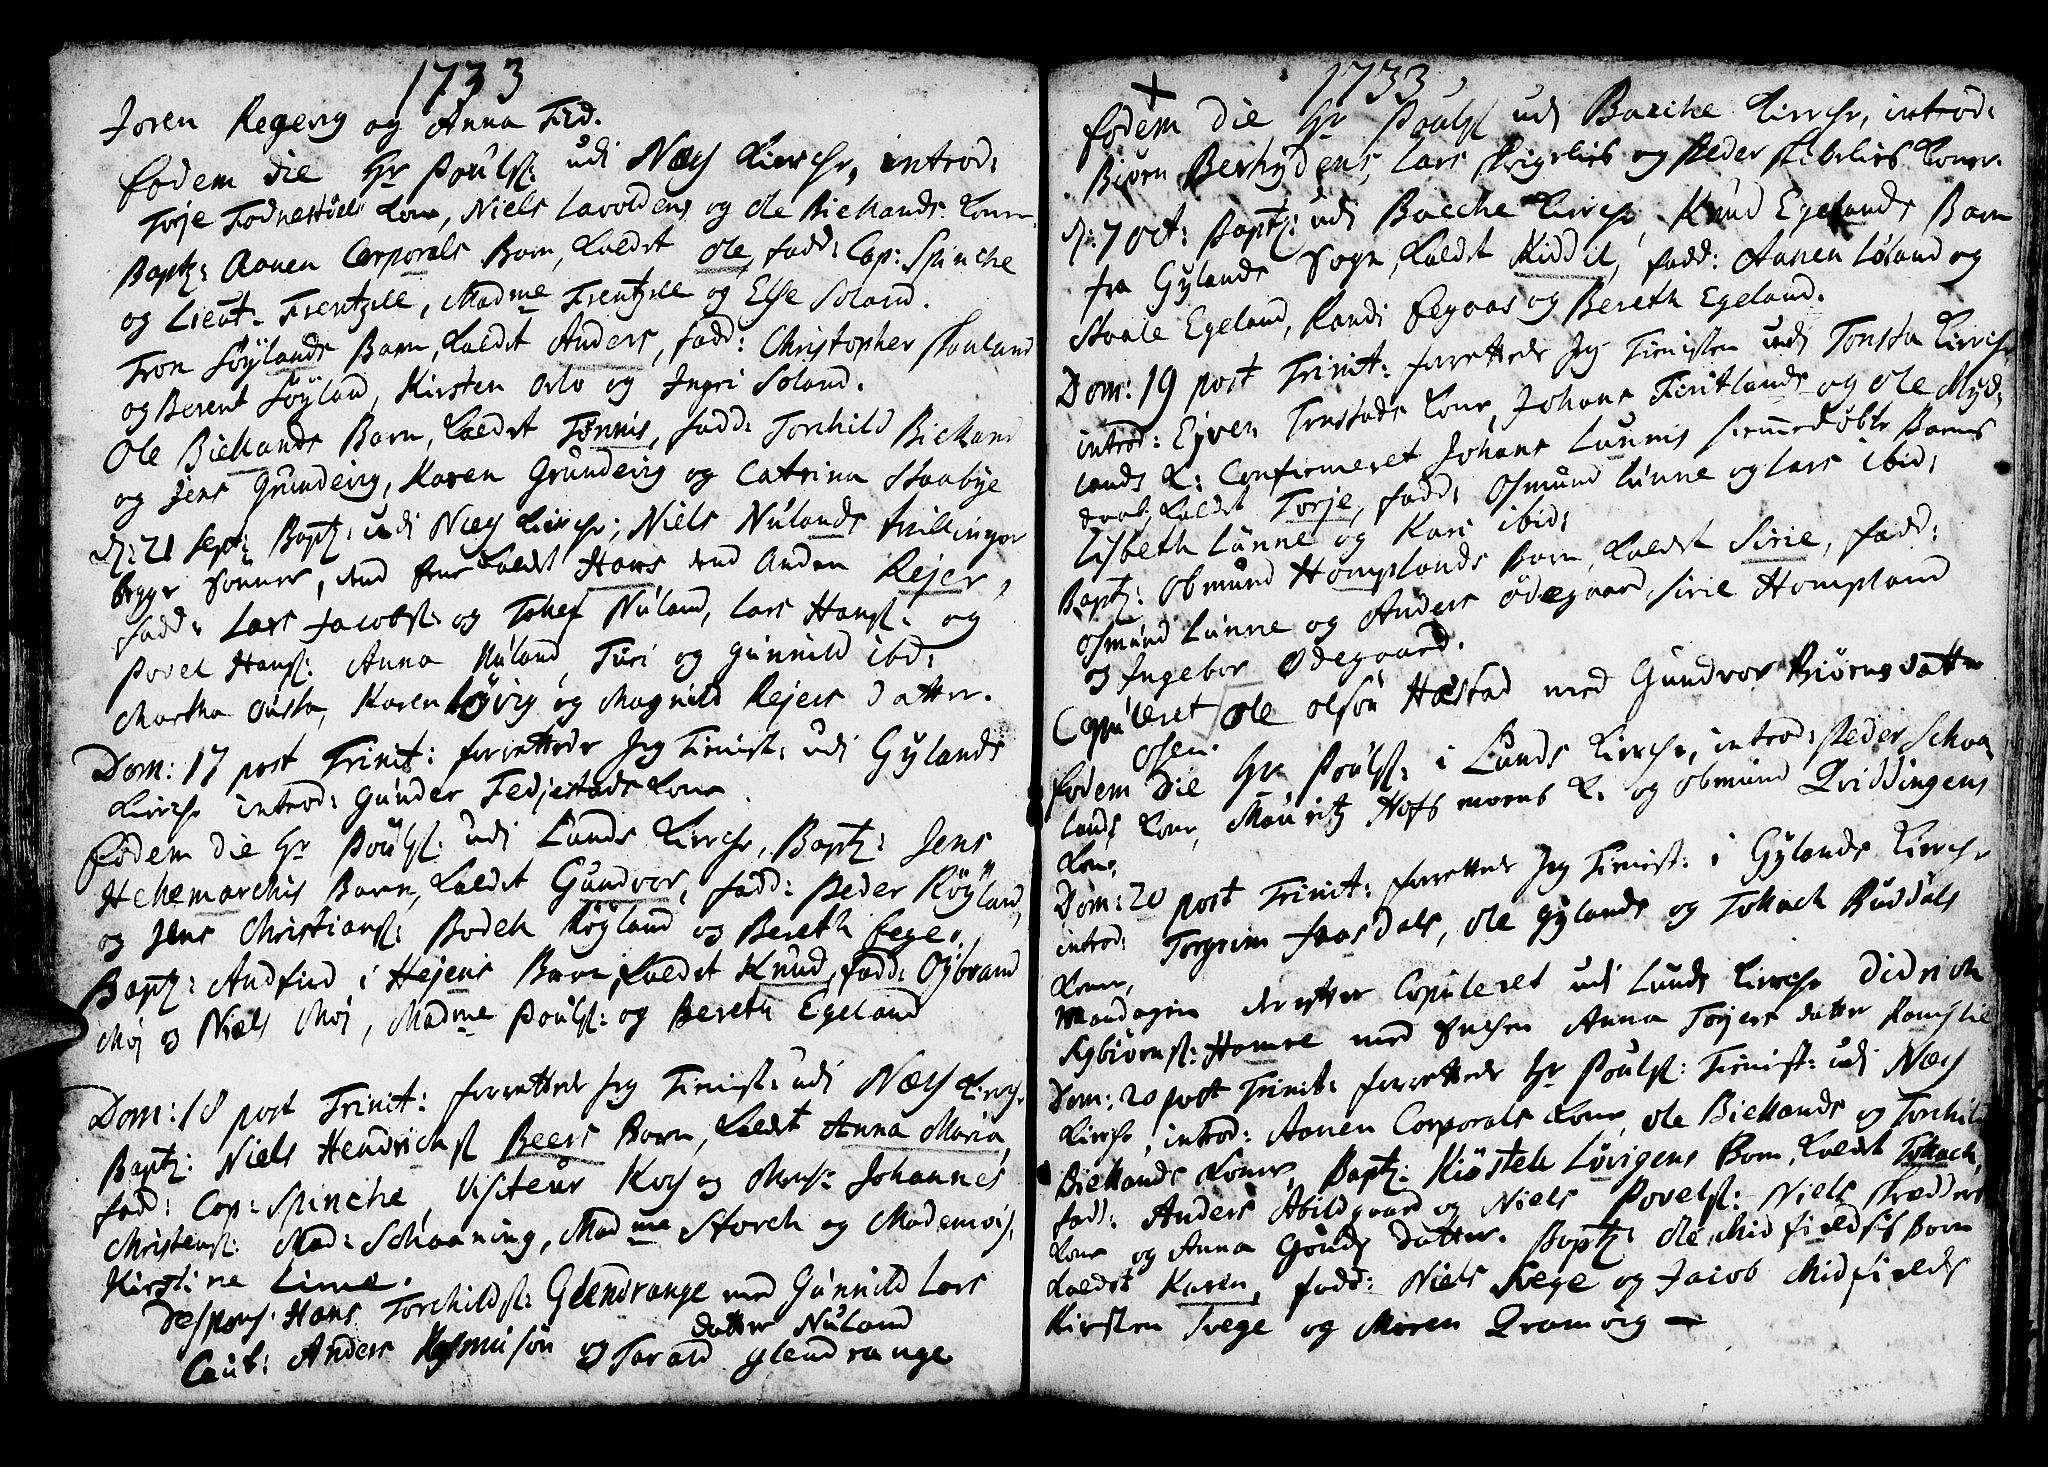 1733
Joren Regevig og Anna Fid.
Eodem die Hr Poulss: udi Næss Kirche, introd:
Torje Fodnestøels Kone, Niels Lavoldens og Ole Biellands Koner
Baptz: Aanen Corporals Barn, kaldet Ole, fadd: Cap: Spinche
og Lieut. Frentzell, Madme Frentzell og Else Soland.
Tron Søylands Barn, kaldet Anders, fadd: Christopher
og Berent Søyland, Kirsten Orlo og Ingri Soland.
Ole Biellands Barn, kaldet Tønnis, fadd: Torchild Bielland
og Jens Grundevig, Karen Grundevig og Catrina Staabye
d: 21 Sept: Baptz: udi Næss Kirche; Niels Nulands tvillinger
begge Sønner, dend Ene kaldet Hans dend Anden Rejer,
fadd: Lars Jacobss: og Tollef Nuland, Lars Hanss: og
Povel Hanss: Anna Nuland, Turi og Gunnild ibd:
Martha Ousta, Karen Løvig og Magnild Rejers datter.
Dom: 17 post Trinit: forrettede Jeg Tienist: udi Gylands
Kirche introd: Gunder Fedjestads Kone
Eodem die Hr Poulss: udi Lunds Kirche, Baptz: Jens
Hellemarchis Barn, kaldet Gundvor, fadd: Peder Røyland,
og Jens Christianss: Bodell Røyland og Bereth Eege.
Baptz: Audfind i Hejens Barn, kaldet Knud, fadd: Osbrand
Moj og Niels Moj, Madme Poulss: og Bereth Egeland
Dom: 18 post Trinit: forrettede Jeg Tienist: udi Næss Kirch.
Baptz: Niels Hendrichss Beers Barn, kaldet Anna Maria,
fadd: Cap: Spinche, Visiteur Koss og Johannes
Christenss: Mad: Schaaning, Madme Storch og Mademois:
Kirstine Lime.
Despons: Hans Torchildss: Glendrange med Gunnild Lars
datter Nuland
Caut: Anders Rasmusøn og Tarald Glendrange

+ 1733
Eodem die Hr Poulss udi Bacche Kirche, introd:
Biørn Berhydens, Lars og Peder Koner.
d: 7 Oct: Baptz: udi Bacche Kirche Knud Egelands Barn
fra Gylands Sogn, kaldet Kiddil, fadd: Aanen Løland og
Staale Egeland, Randi Eegaas og Bereth Egeland.
Dom: 19 post Trinit: forrettede Jeg Tienisten udi Tonsta Kirche
introd: Ejven Tonstads Kone, Johans Fintlands og Ole Myd:
lands K: Confirmeret Johans Lunnis hiemmedøbte Barns
daab, kaldet Torje, fadd: Osmund Lunne og Lars ibid:
Lisbeth Lunne og Kari ibid:
Baptz: Obmund Homplands Barn, kaldet Sirie, fadd:
Osmund Lunne og Anders Ødegaard, Sirie Hompland
og Ingebor Ødegaard.
Copuleret Ole Olsøn Hæstad med Gundvor Biørnsdatter
Osen.
Eodem Die Hr Poulss: i Lunds Kirche, introd: Peder Schaa
lands Kone, Mauritz Hofsmoens K: og Obmund Qviddingens
Kone,
Dom: 20 post Trinit: forrettede Jeg Tienist: i Gylands Kirche
introd: Torgrim Aasdals, Ole Gylands og Tollach Buddals
Koner,
Mandagen derefter Copuleret udi Lunds Kirche Didrich
Sigbiørnss: Hamre med Enchen Anna Tøyers datter
Dom: 20 post Trinit: forrettede Hr Poulss: Tienist: udi Næss
Kirche, introd: Aanen Corporals Kone, Ole Biellands og Torchild
Biellands Koner, Baptz: Kiøstell Løvigens Barn, kaldet Tollach,
fadd: Anders Abildgaard og Niels Povelss: Niels Skrædders
Kone og Anna Gouds datter. Baptz: Ole Midfields Barn
kaldet Karen, fadd: Niels Svege og Jacob Midfields
Kirsten Svege og Maren Qvamvig —